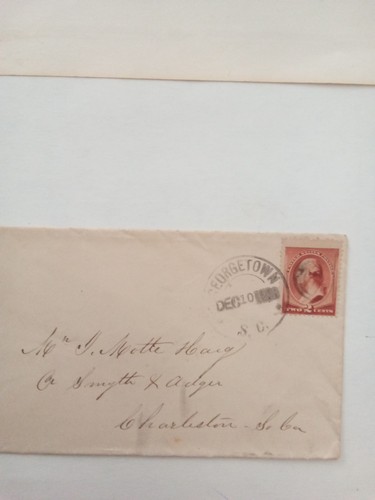 GEORGETOWN
DEC 10
S. C.
TWO 2 CENTS
Mr J. Motte Haig
Cr Smyth & Adger
Charleston So Ca